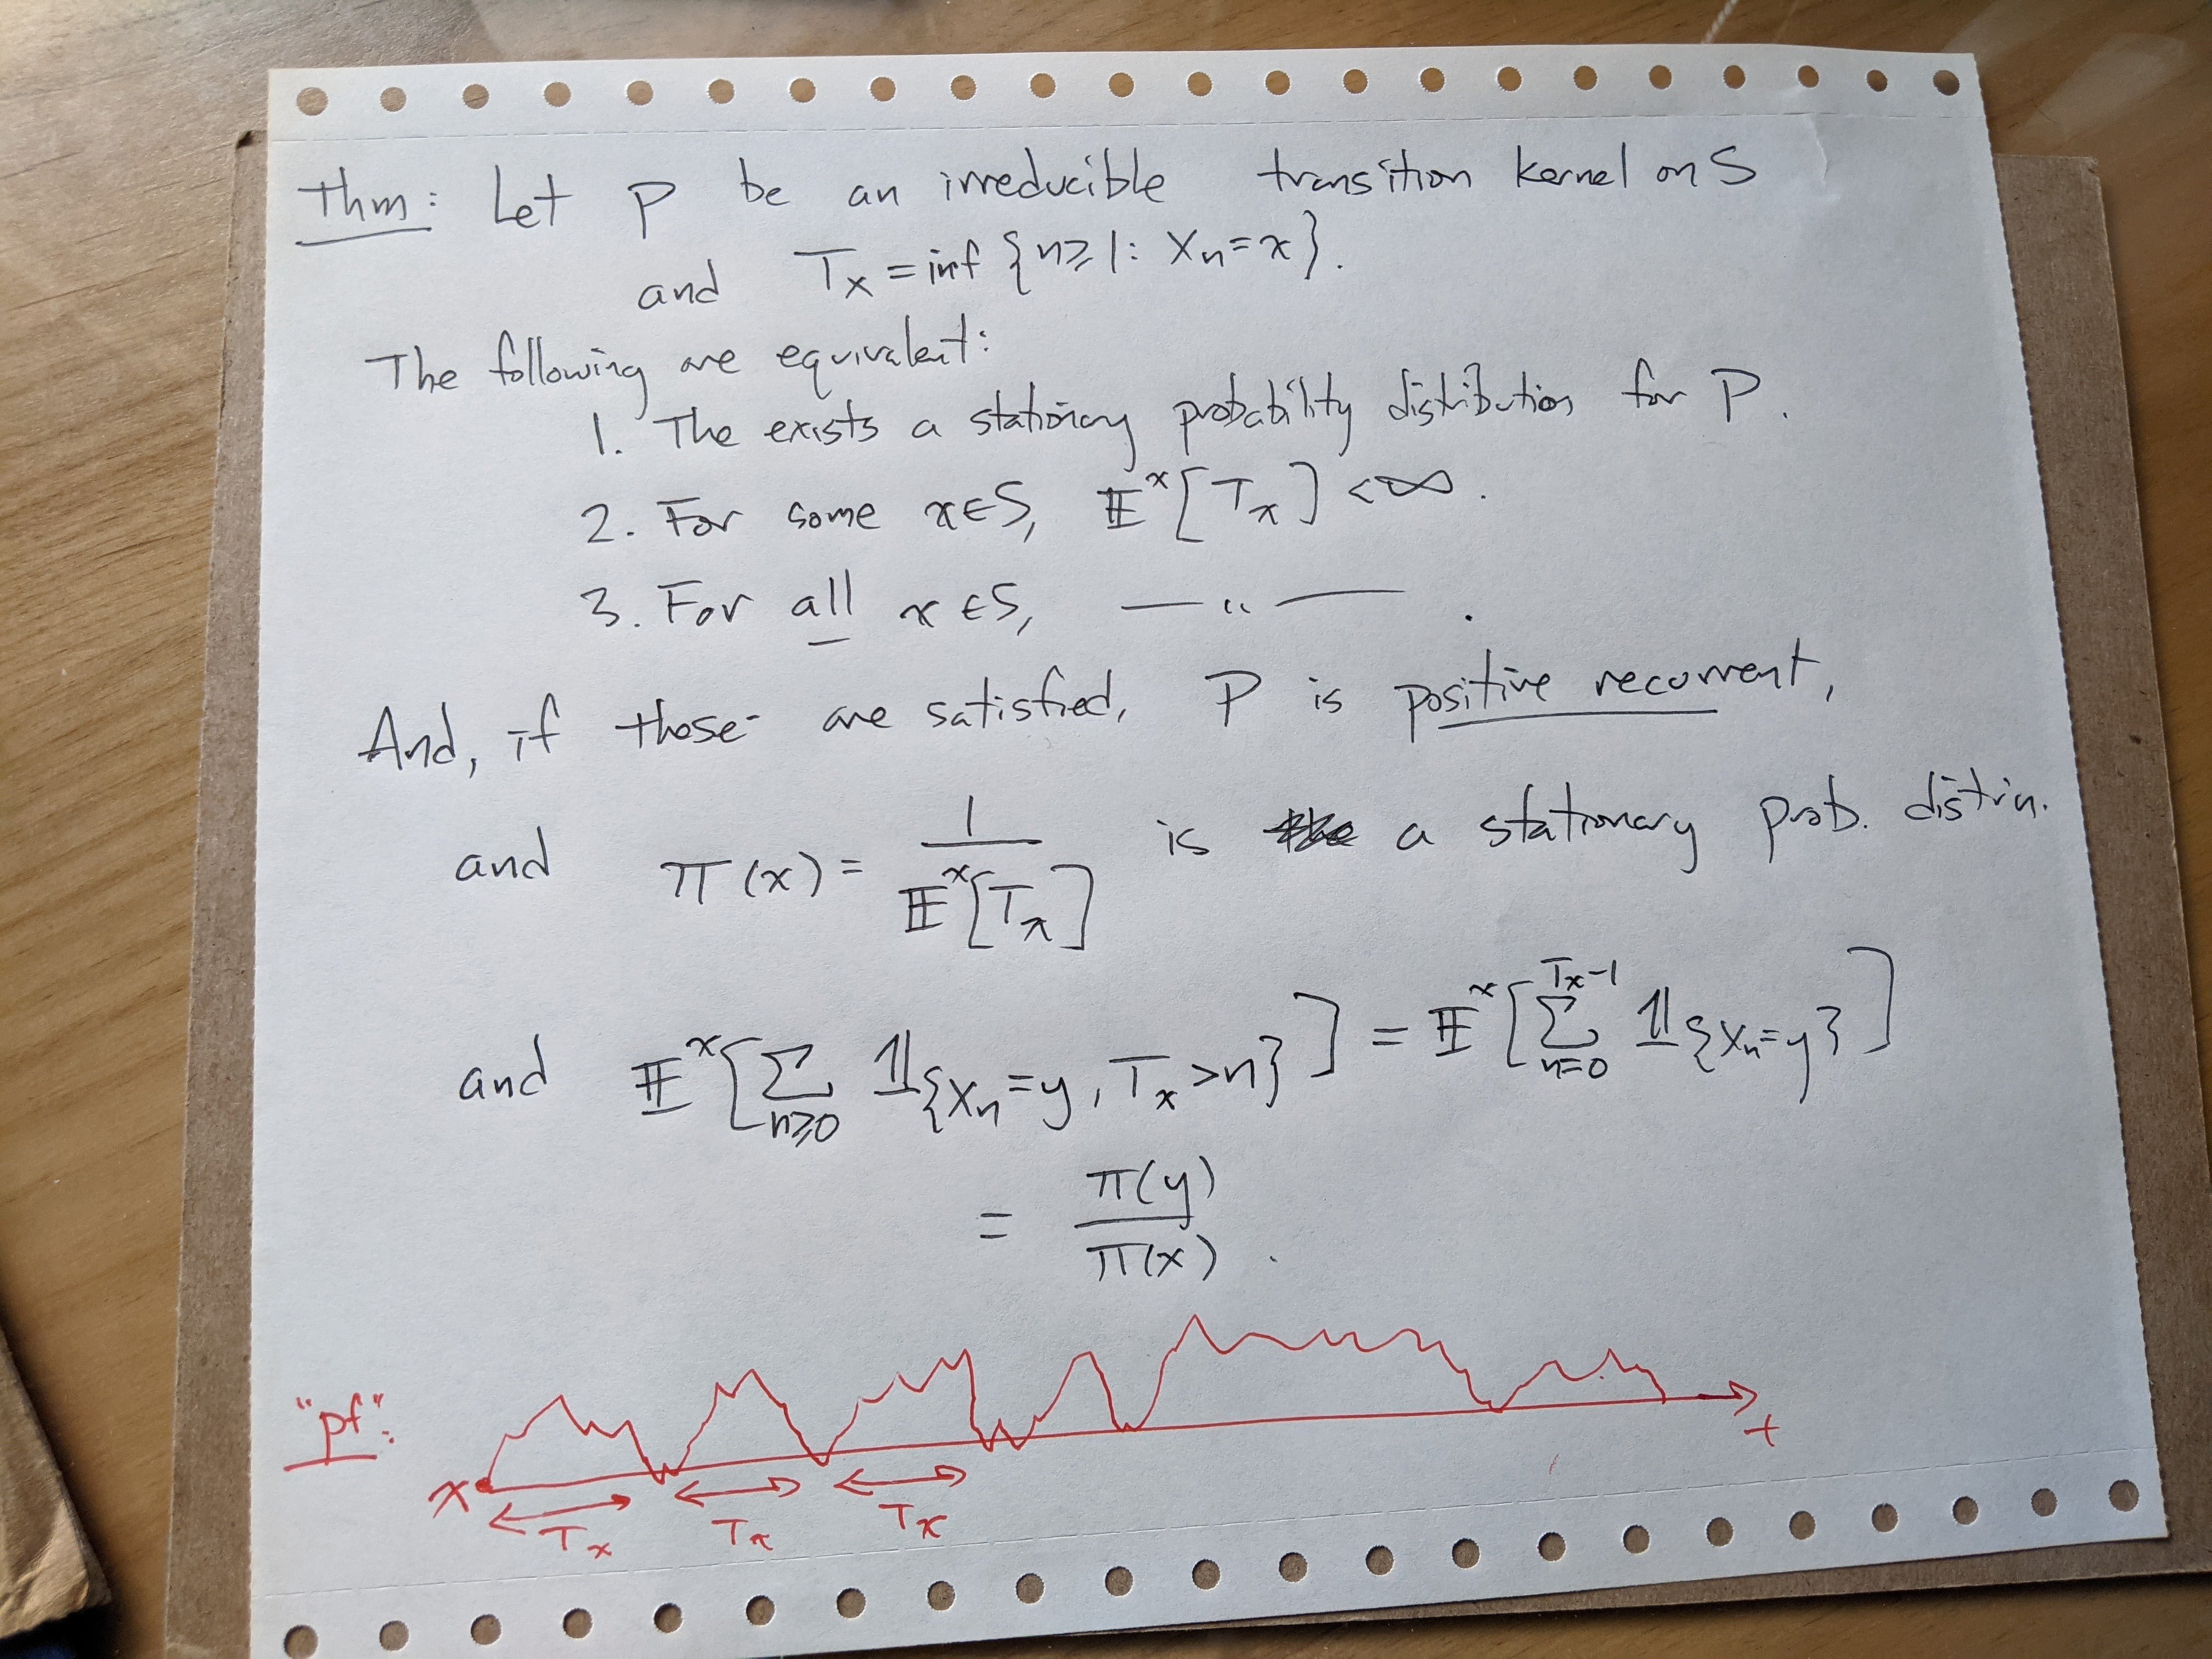 Thm: Let P be an irreducible transition kernel on S
and T_x = inf {n ≥ 1 : X_n = x}.
The following are equivalent:
1. The exists a stationary probability distribution for P.
2. For some x ∈ S, 𝔼^x[T_x] < ∞.
3. For all x ∈ S, — " — .
And, if those are satisfied, P is positive recurrent,
and π(x) = 1 / 𝔼^x[T_x] is a stationary prob. distrin.
and 𝔼^x[∑_{n≥0} 𝟙{X_n = y, T_x > n}] = 𝔼^x[∑_{n=0}^{T_x - 1} 𝟙{X_n = y}]
= π(y) / π(x) .
"pf":
x t
T_x T_x T_x